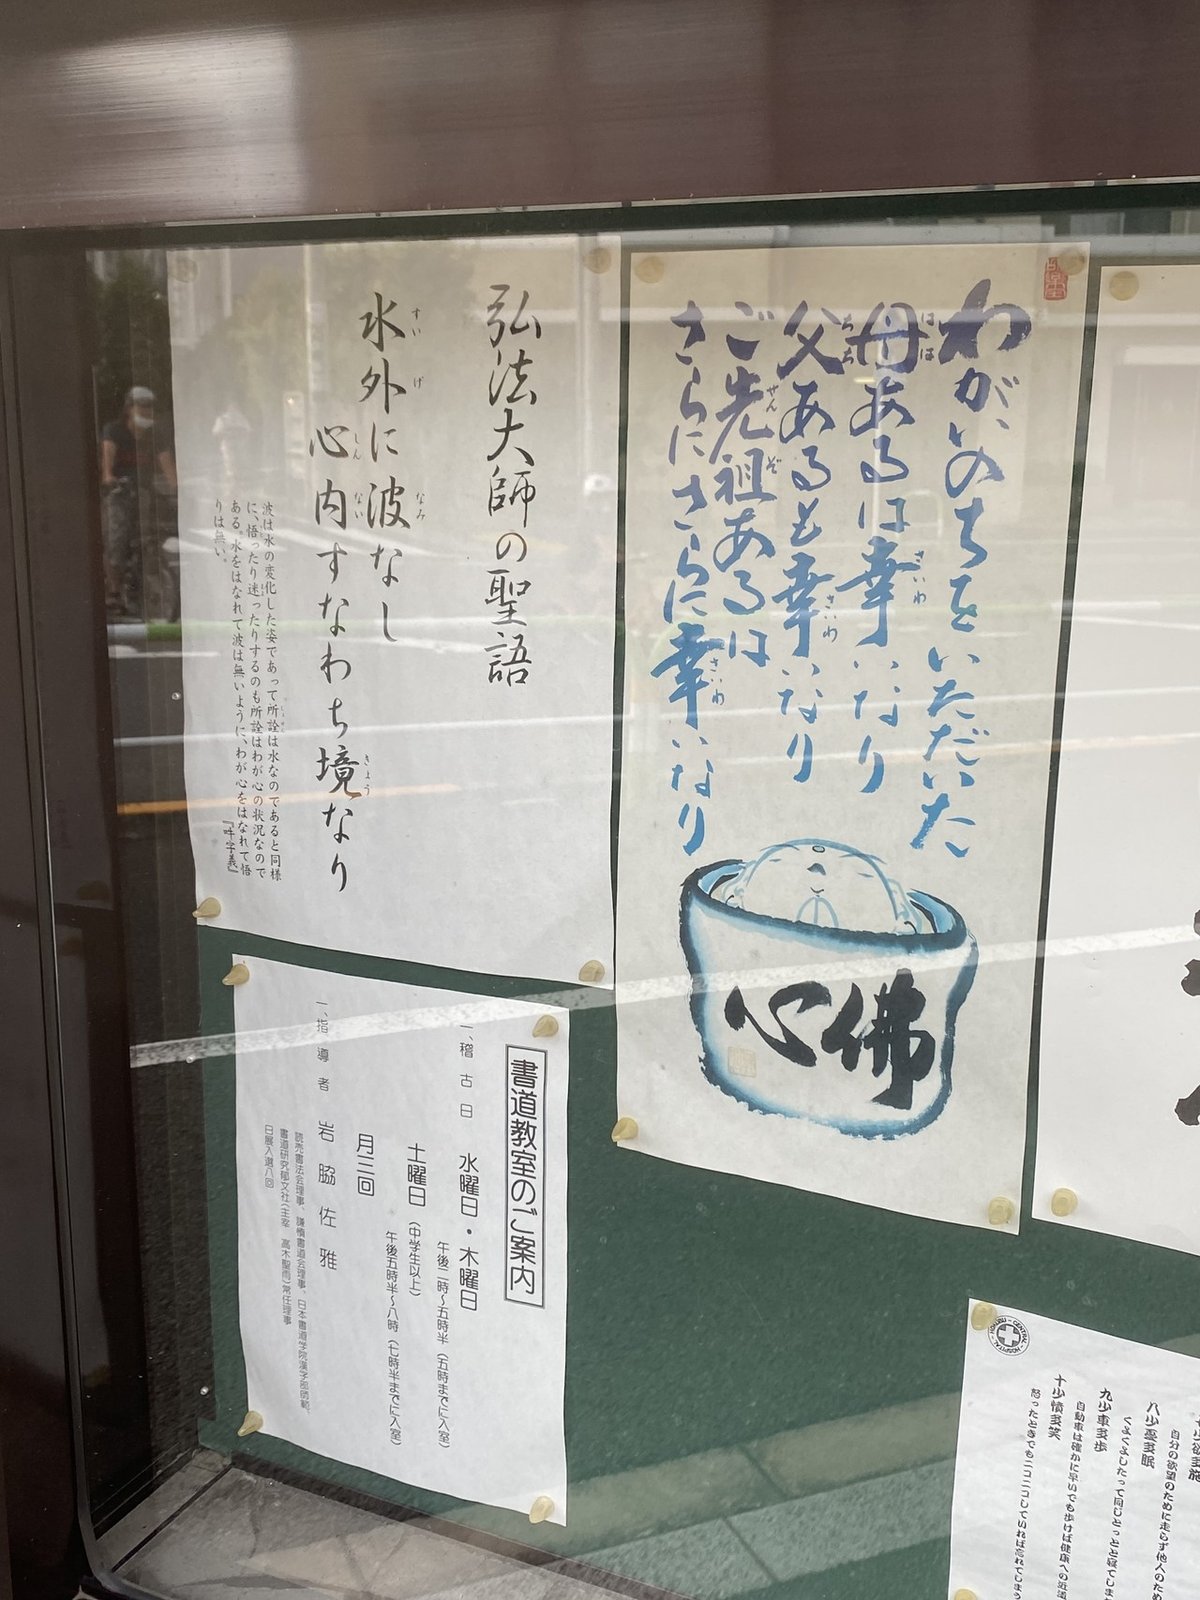 わがいのちをいただいた
母あるは幸いなり
父あるも幸いなり
ご先祖あるは
さらにさらに幸いなり
佛心
弘法大師の聖語
水外に波なし
心内すなわち境なり
波は水の変化した姿であって所詮は水なのであると同様
に、悟ったり迷ったりするのも所詮はわが心の状況なので
ある。水をはなれて波は無いように、わが心をはなれて悟
りは無い。
『吽字義』
書道教室のご案内
一、稽古日 水曜日・木曜日
午後二時～五時半（五時までに入室）
土曜日（中学生以上）
午後五時半～八時（七時半までに入室）
月三回
一、指導者 岩脇佐雅
読売書法会理事、謙慎書道会理事、日本書道学院漢字部師範、
書道研究郁文社（主宰 高木聖雨）常任理事
日展入選八回
CENTRAL HOSPITAL
自分の欲望のために走らず他人のため
八少憂多眠
くよくよしたって同じとっとと寝てしま
九少車多歩
自動車は確かに早いでも歩けば健康への近道
十少憤多笑
怒ったときでもニコニコしていれば忘れてしまう